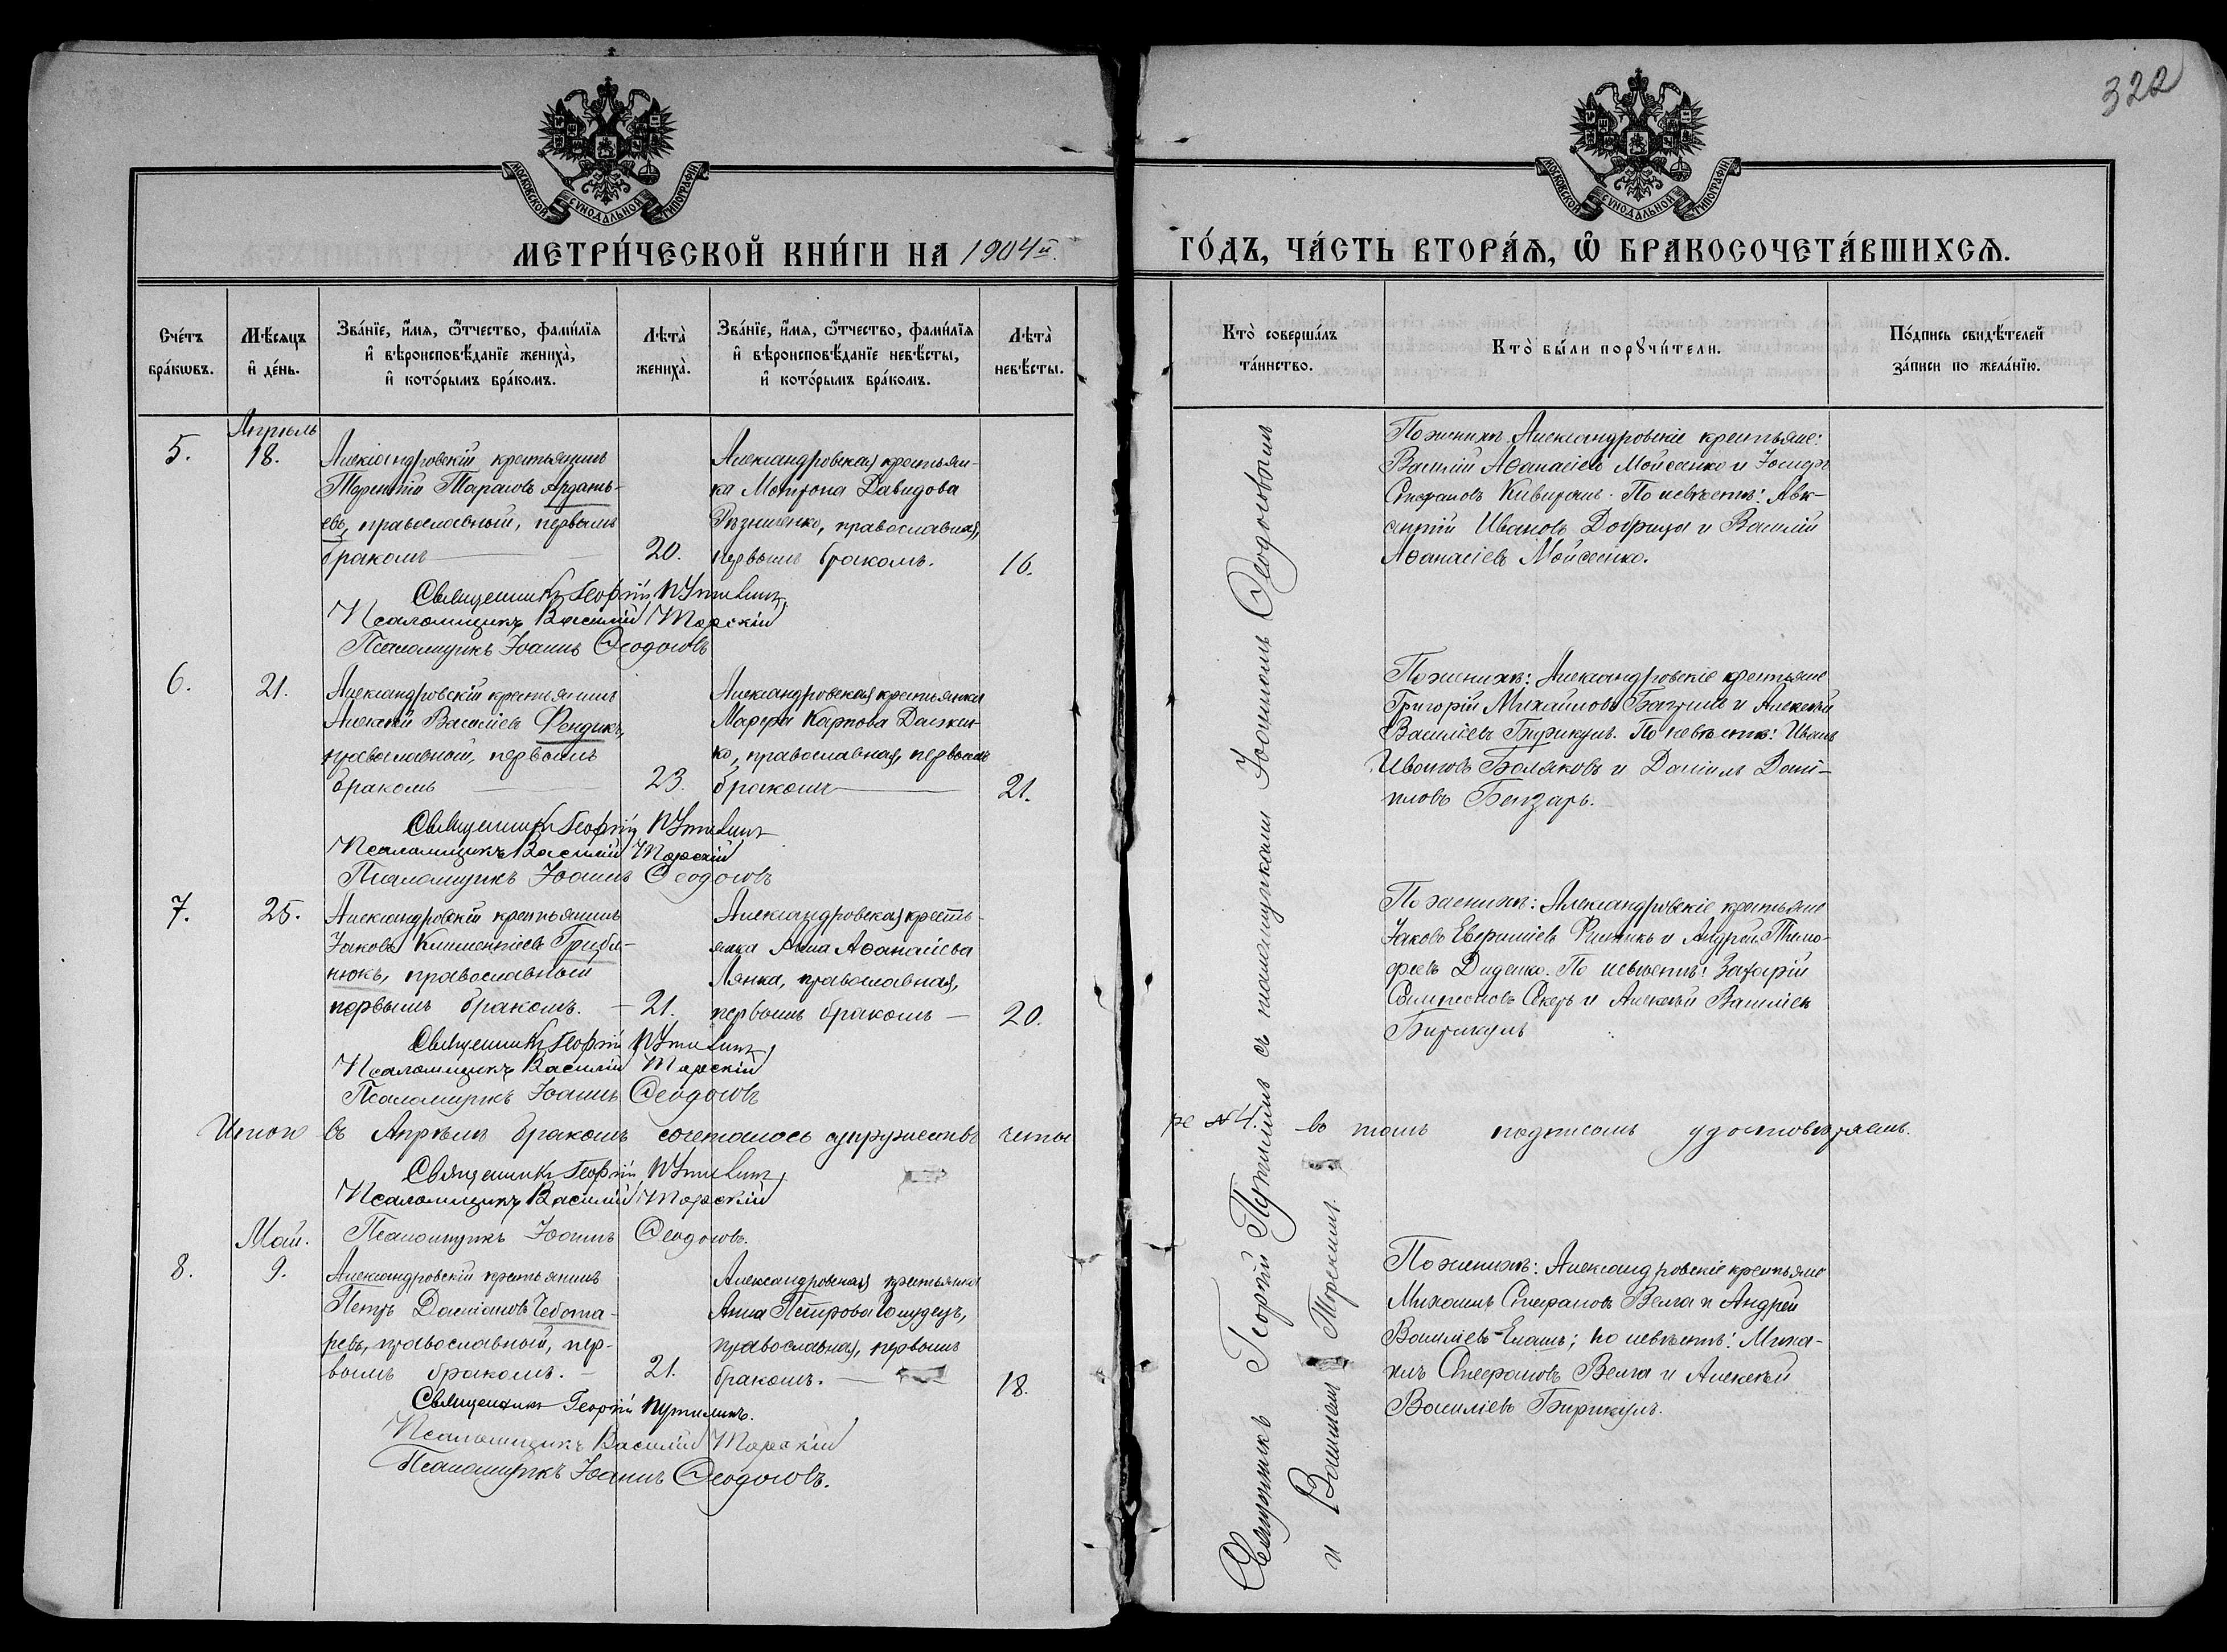 322
МОСКОВСКОЙ СѴНОДАЛЬНОЙ ТИПОГРАФІИ
МОСКОВСКОЙ СѴНОДАЛЬНОЙ ТИПОГРАФІИ
МЕТРИ́ЧЕСКОЙ КНИ́ГИ НА 1904й.
ГО́ДЪ, ЧА́СТЬ ВТОРА́Ѧ, Ѽ БРАКОСОЧЕТА́ВШИХСѦ.
Сче́тъ
бра́кѡвъ.
Мѣ́сяцъ
и҆ де́нь.
Зва́нїе, и҆́мя, ѻ҆́тчество, фами́лїя
и҆ вѣроисповѣ́данїе жениха̀,
и҆ кото́рымъ бра́комъ.
Лѣта̀
жениха̀.
Зва́нїе, и҆́мя, ѻ҆́тчество, фами́лїя
и҆ вѣроисповѣ́данїе невѣ́сты,
и҆ кото́рымъ бра́комъ.
Лѣта̀
невѣ́сты.
Кто̀ соверша́лъ
та́инство.
Кто̀ бы́ли порꙋчи́тели.
По́дпись свидѣ́телей
за́писи по жела́нїю.
Апрѣль
5.
18.
Александровскій крестьянинъ
Терентій Тарасовъ Ардать-
евъ, православный, первымъ
бракомъ
20.
Александровская крестьян-
ка Матрона Давидова
православная,
первымъ бракомъ.
16.
По женихѣ Александровскіе крестьяне:
Василій Аѳанасіевъ Мойсеенко и Іосифъ
Стефановъ По невѣстѣ: Авк-
сентій Ивановъ и Василій
Аѳанасіевъ Мойсеенко.
Священникъ Георгій Путилинъ
Псаломщикъ Василій Торскій
Псаломщикъ Іоаннъ Ѳеодосовъ
6.
21.
Александровскій крестьянинъ
Алексій Василіевъ Фендикъ,
православный, первымъ
бракомъ
23.
Александровская крестьянка
Марѳа Карпова
православная, первымъ
бракомъ
21.
По женихѣ: Александровскіе крестьяне
Григорій Михайловъ и Алексѣй
Василіевъ Бирикулъ. По невѣстѣ: Иванъ
Ивановъ Боляковъ и Даніилъ Дані-
иловъ Бензарь.
Священникъ Георгій Путилинъ
Псаломщикъ Василій Торскій
Псаломщикъ Іоаннъ Ѳеодосовъ
7.
25.
Александровскій крестьянинъ
Іаковъ Климентіевъ Гриби-
нюкъ, православный
первымъ бракомъ.
21.
Александровская кресть-
янка Анна Аѳанасіева
Лянка, православная,
первымъ бракомъ
20.
По женихѣ: Александровскіе крестьяне
Іаковъ и Андрей Тимо-
феевъ Диденко. По невѣстѣ: Захарій
Сампсоновъ и Алексѣй Василіевъ
Бирикулъ
Священникъ Георгій Путилинъ
Псаломщикъ Василій Торскій
Псаломщикъ Іоаннъ Ѳеодосовъ
Итого въ Апрѣлѣ бракомъ сочеталось супружествъ четы-
ре №4. въ томъ подписомъ удостовѣряемъ.
Священникъ Георгій Путилинъ
Псаломщикъ Василій Торскій
Псаломщикъ Іоаннъ Ѳеодосовъ.
Май.
8.
9.
Александровскій крестьянинъ
Петръ Даміановъ Чебота-
ревъ, православный, пер-
вымъ бракомъ.
21.
Александровская крестьянка
Анна Петрова
православная, первымъ
бракомъ.
18.
По женихѣ: Александровскіе крестьяне
Михаилъ Стефановъ Велга и Андрей
Василіевъ по невѣстѣ: Миха-
илъ Стефановъ Велга и Алексѣй
Василіевъ Бирикулъ.
Священникъ Георгій Путилинъ.
Псаломщикъ Василій Торскій
Псаломщикъ Іоаннъ Ѳеодосовъ.
Священникъ Георгій Путилинъ съ псаломщиками Іоанномъ Ѳеодосовымъ
и Василіемъ Торскимъ.